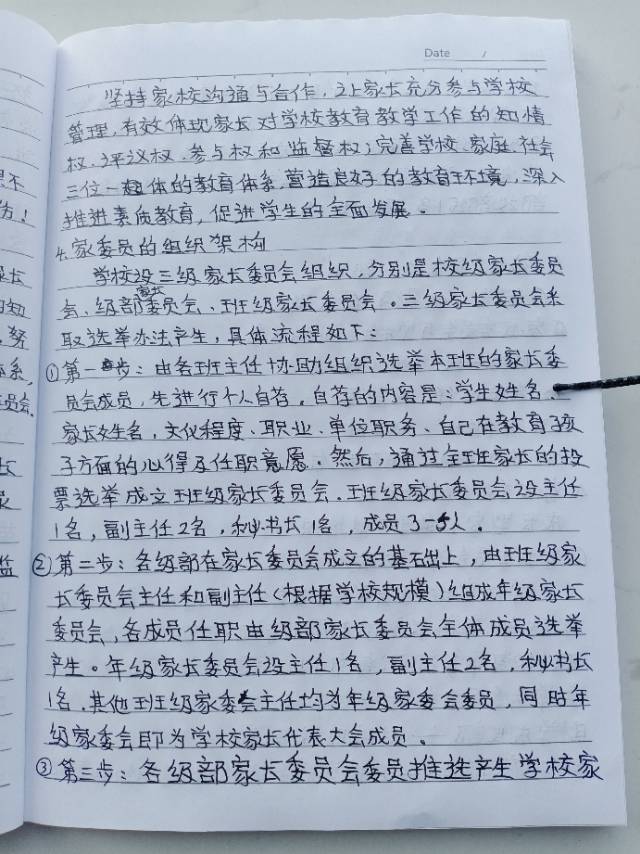 Date /
坚持家校沟通与合作,让家长充分参与学校
管理,有效体现家长对学校教育教学工作的知情
权、评议权、参与权和监督权;完善学校、家庭、社会
三位一体的教育体系,营造良好的教育环境,深入
推进素质教育,促进学生的全面发展。
4.家委员的组织架构
学校设三级家长委员会组织,分别是校级家长委员
会、级部家长委员会、班级家长委员会。三级家长委员会采
取选举办法产生,具体流程如下:
①第一步:由各班主任协助组织选举本班的家长委
员会成员,先进行个人自荐,自荐的内容是:学生姓名、
家长姓名,文化程度、职业、单位职务、自己在教育孩
子方面的心得及任职意愿。然后,通过全班家长的投
票选举成立班级家长委员会。班级家长委员会设主任
1名,副主任2名,秘书长1名,成员3-5人。
②第二步:各级部在家长委员会成立的基础上,由班级家
长委员会主任和副主任(根据学校规模)组成年级家长
委员会,各成员任职由级部家长委员会全体成员选举
产生。年级家长委员会设主任1名,副主任2名,秘书长
1名,其他班级家委会主任均为年级家委会委员,同时年
级家委会即为学校家长代表大会成员。
③第三步:各级部家长委员会委员推选产生学校家